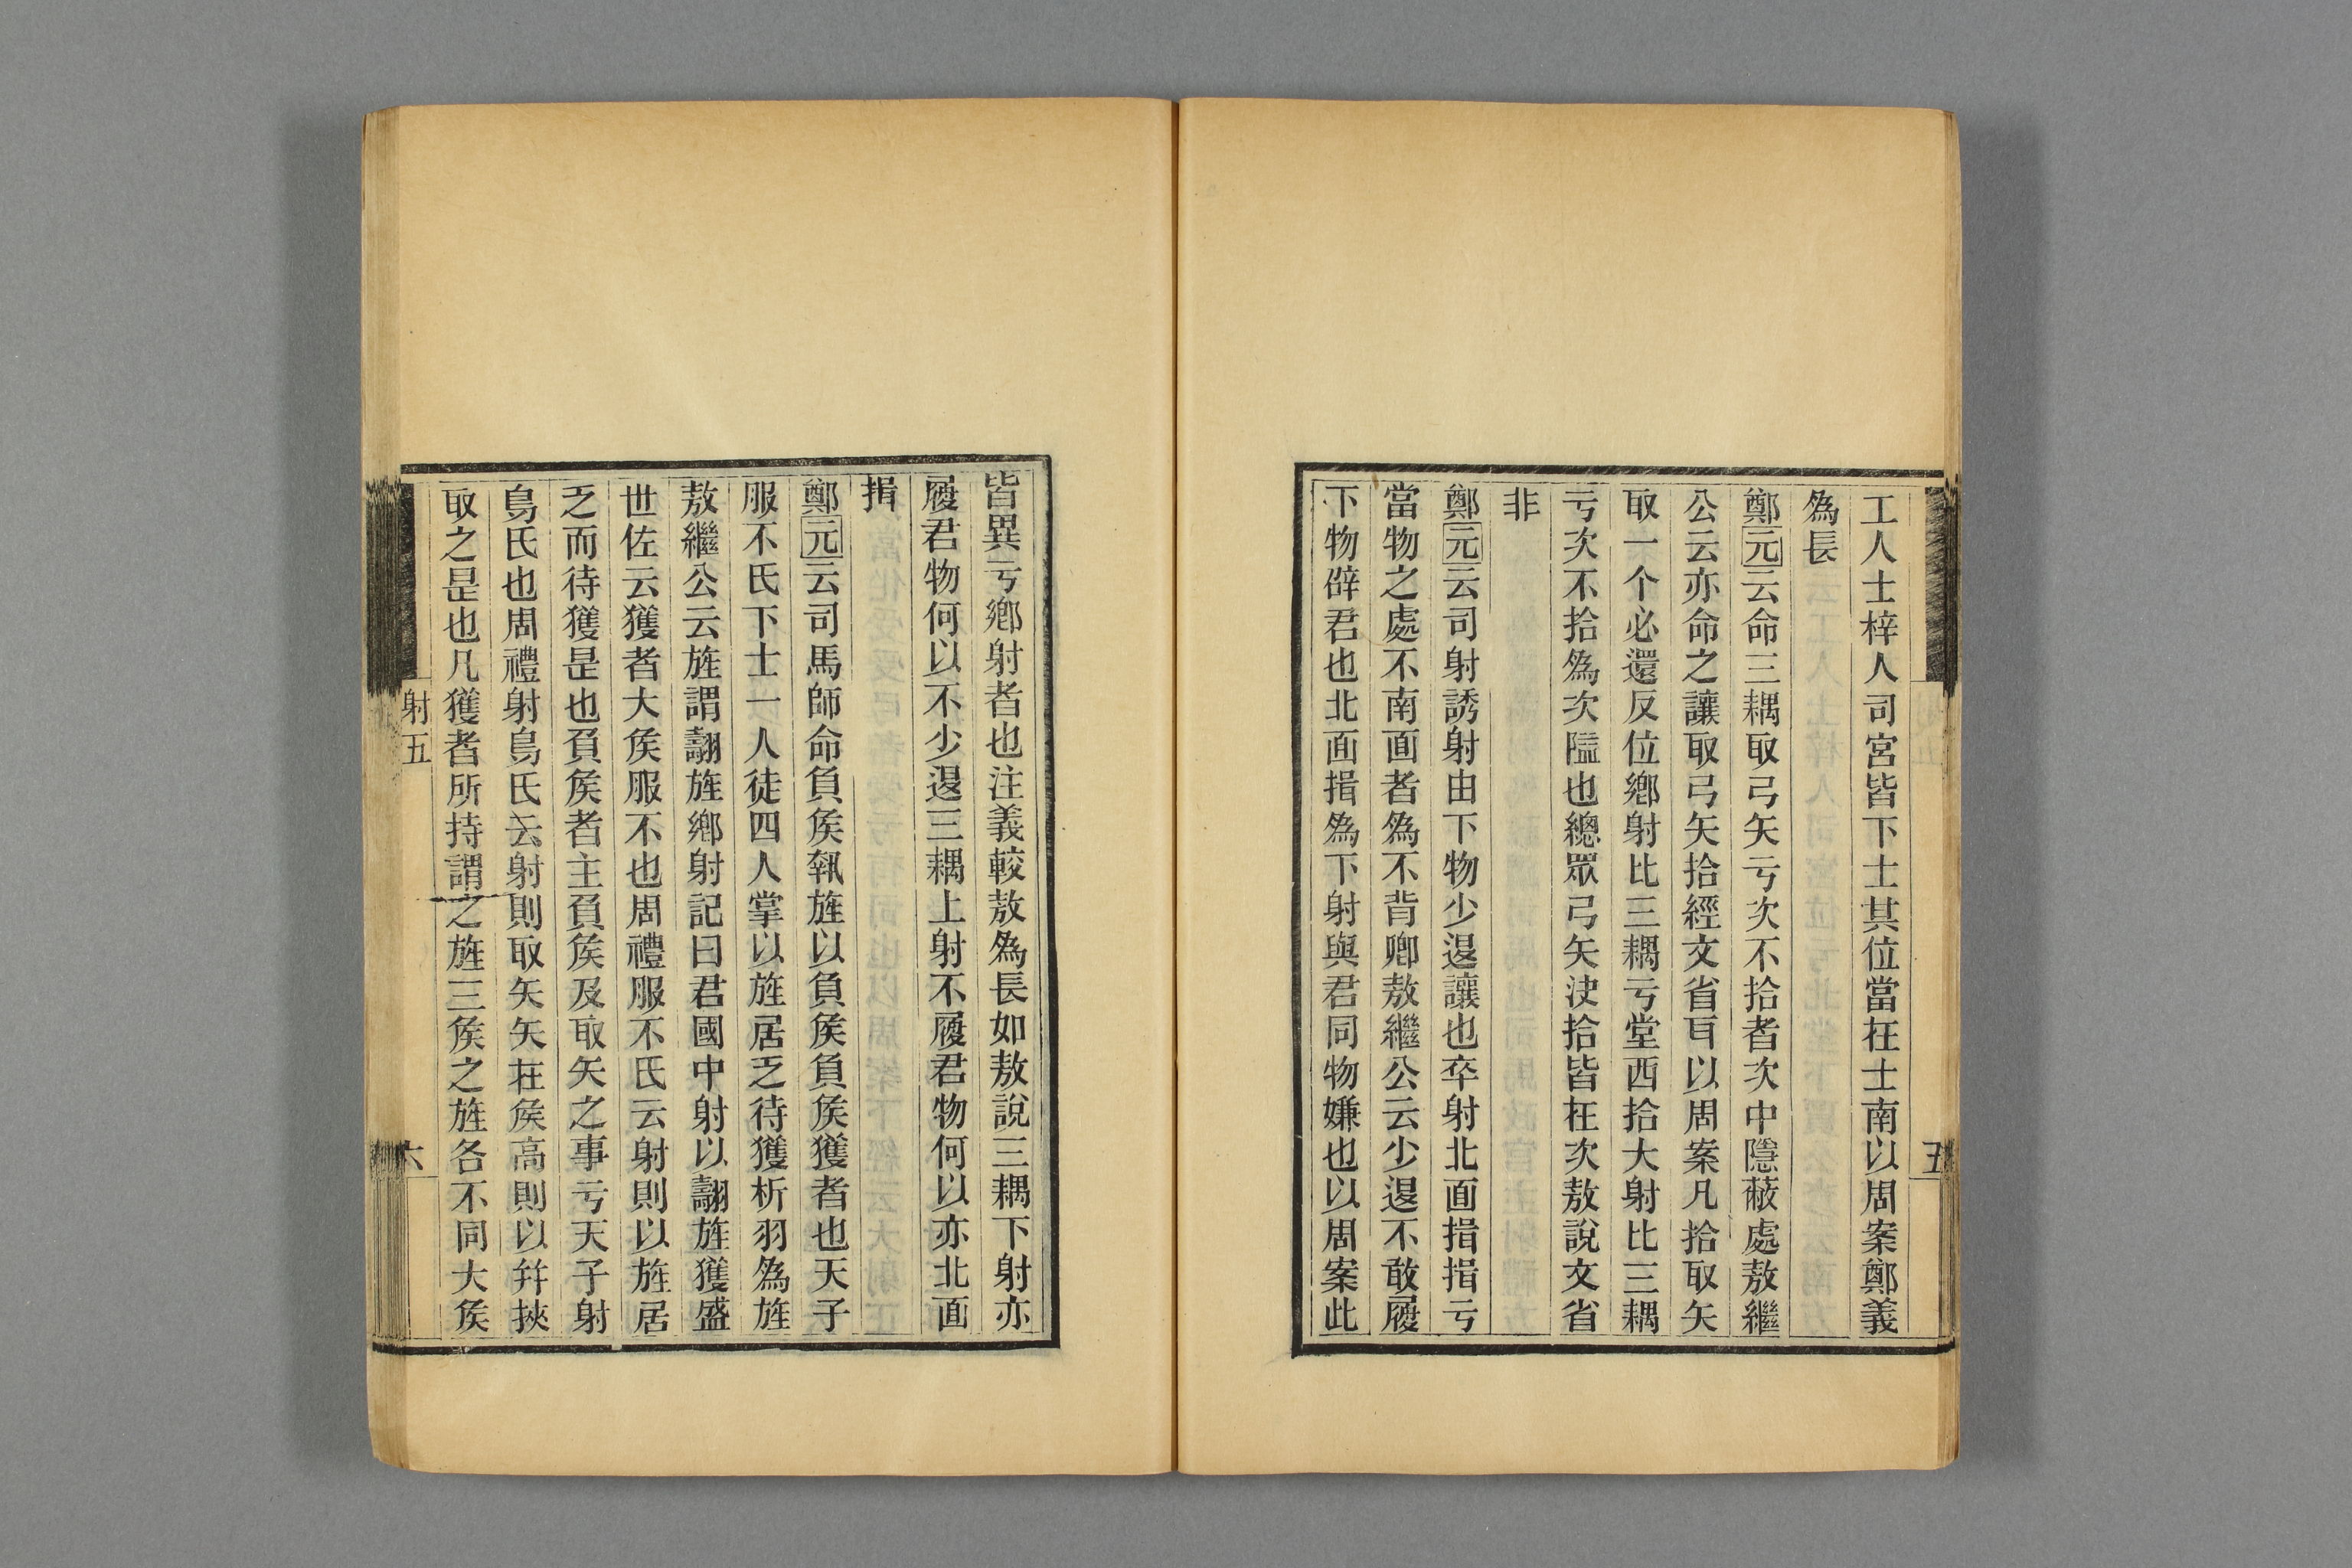 工人士梓人司宮皆下士其位當在士南以周案鄭義
為長
鄭元云命三耦取弓矢亏次不拾者次中隱蔽處敖繼
公云亦命之讓取弓矢拾經文省耳以周案凡拾取矢
取一个必還反位鄉射比三耦亏堂西拾大射比三耦
亏次不拾為次隘也總眾弓矢決拾皆在次敖說文省
非
鄭元云司射誘射由下物少退讓也卒射北面揖揖亏
當物之處不南面者為不背卿敖繼公云少退不敢履
下物辟君也北面揖為下射與君同物嫌也以周案此
五
皆異亏鄉射者也注義較敖為長如敖說三耦下射亦
履君物何以不少退三耦上射不履君物何以亦北面
揖
鄭元云司馬師命負矦執旌以負矦負矦獲者也天子
服不氏下士一人徒四人掌以旌居乏待獲析羽為旌
敖繼公云旌謂翿旌鄉射記曰君國中射以翿旌獲盛
世佐云獲者大矦服不也周禮服不氏云射則以旌居
乏而待獲是也負矦者主負矦及取矢之事亏天子射
鳥氏也周禮射鳥氏云射則取矢矢在矦高則以并挾
取之是也凡獲者所持謂之旌三矦之旌各不同大矦
射五
六